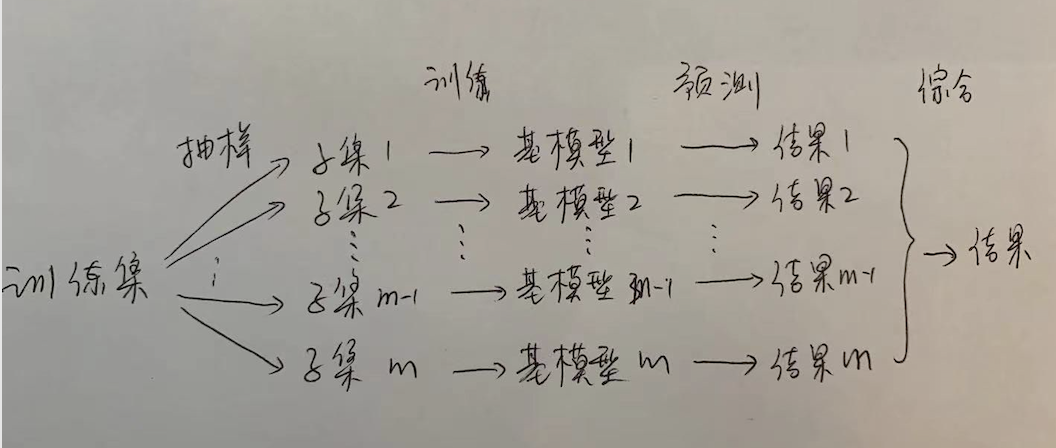 训练 预测 综合
抽样 子集1 → 基模型1 → 结果1
子集2 → 基模型2 → 结果2
训练集 → 结果
子集m-1 → 基模型m-1 → 结果m-1
子集m → 基模型m → 结果m